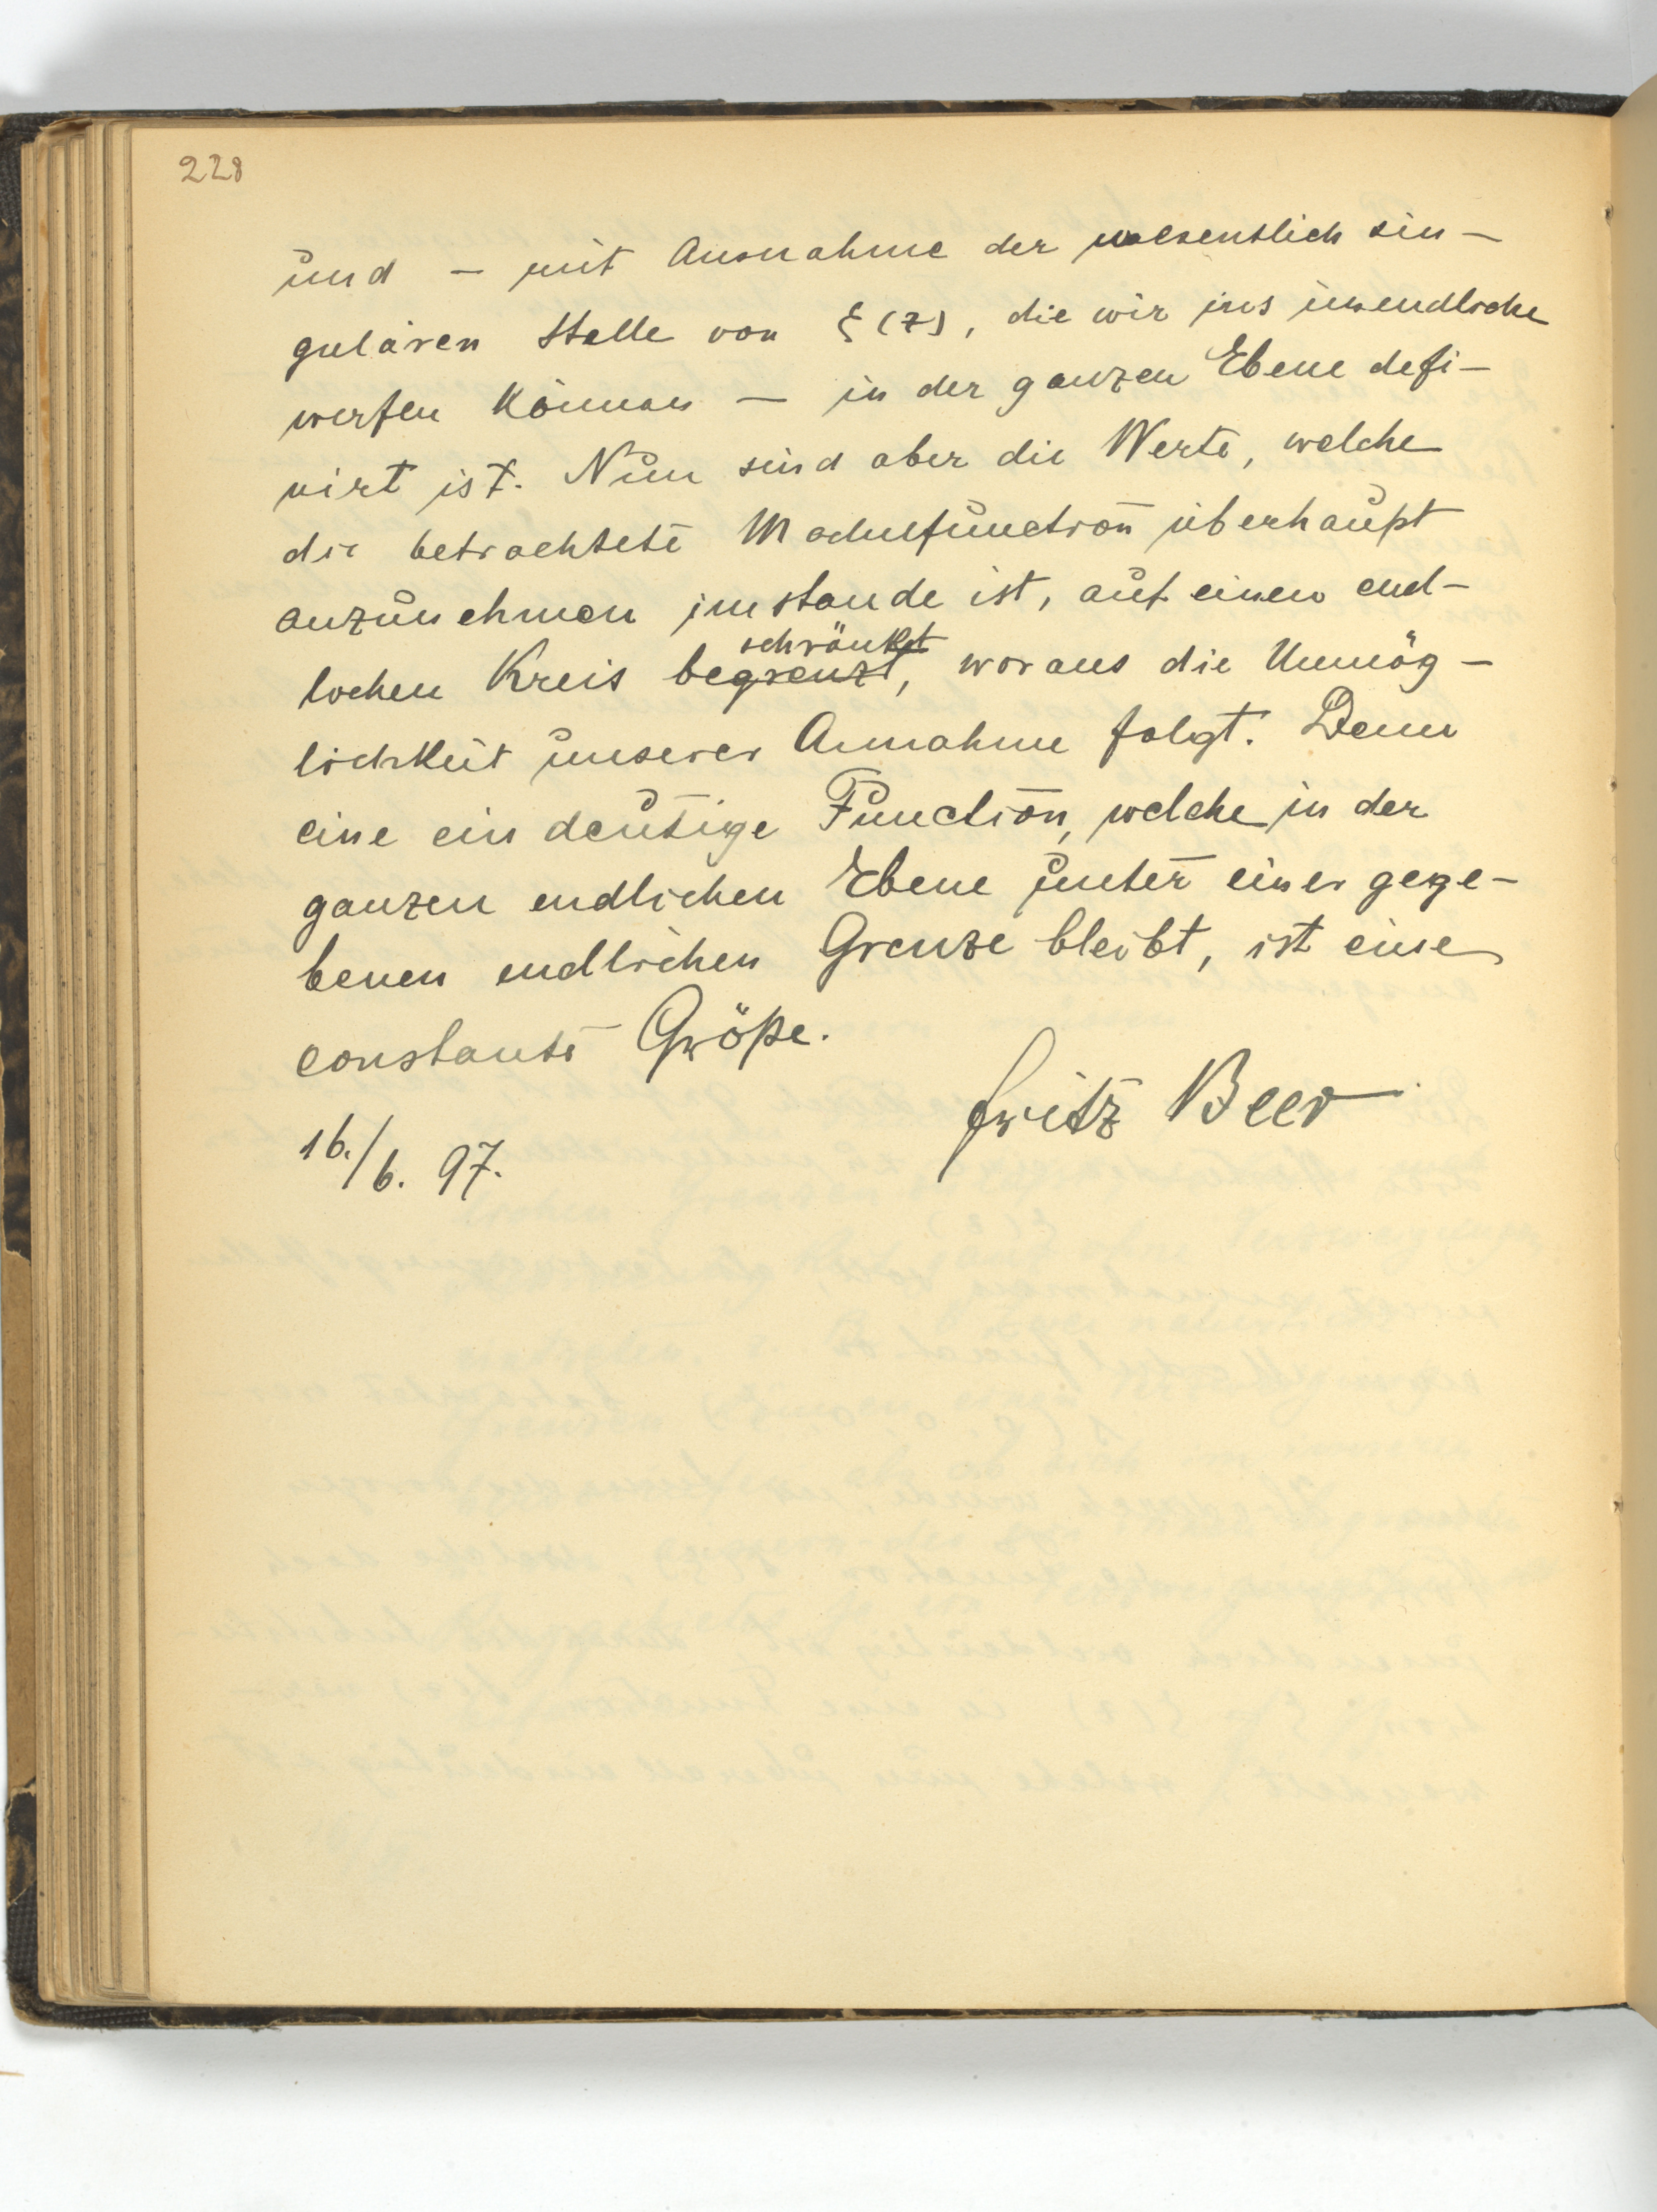 228
und – mit Ausnahme der wesentlich sin–
gulären Stelle von ξ(z), die wir ins unendliche
werfen können – in der ganzen Ebene defi–
nirt ist. Nun sind aber die Werte, welche
die betrachtete Modulfunction überhaupt
anzunehmen imstande ist, auf einen end–
schränkt
lichen Kreis begrenzt, woraus die Unmög–
lichkeit unserer Annahme folgt. Denn
eine eindeutige Function, welche in der
ganzen endlichen Ebene unter einer gege–
benen endlichen Grenze bleibt, ist eine
constante Größe.
Fritz Beer
16./6. 97.